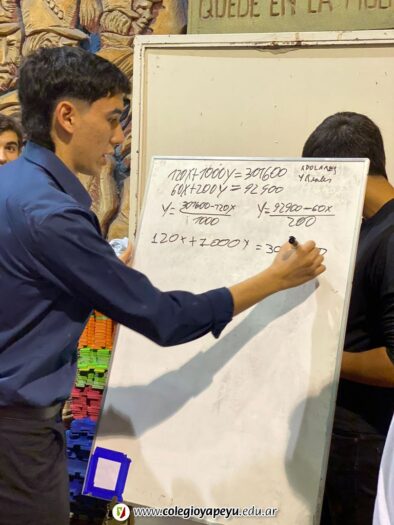 QUEDE EN LA
120X+1000Y=301600
60X+200Y=92900
Y=301600-120X/1000 Y=92900-60X/200
120X+1000Y=30
www.colegioyapeyu.edu.ar